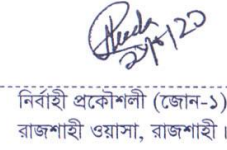 নির্বাহী প্রকৌশলী (জোন-১)
রাজশাহী ওয়াসা, রাজশাহী।